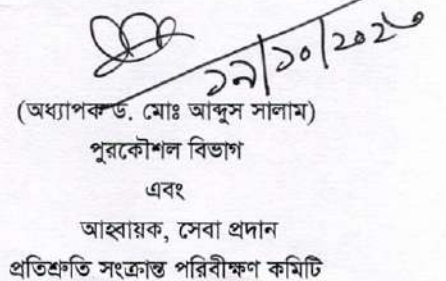 ১৯/১০/২০২৩
(অধ্যাপক ড. মোঃ আব্দুস সালাম)
পুরকৌশল বিভাগ
এবং
আহ্বায়ক, সেবা প্রদান
প্রতিশ্রুতি সংক্রান্ত পরিবীক্ষণ কমিটি